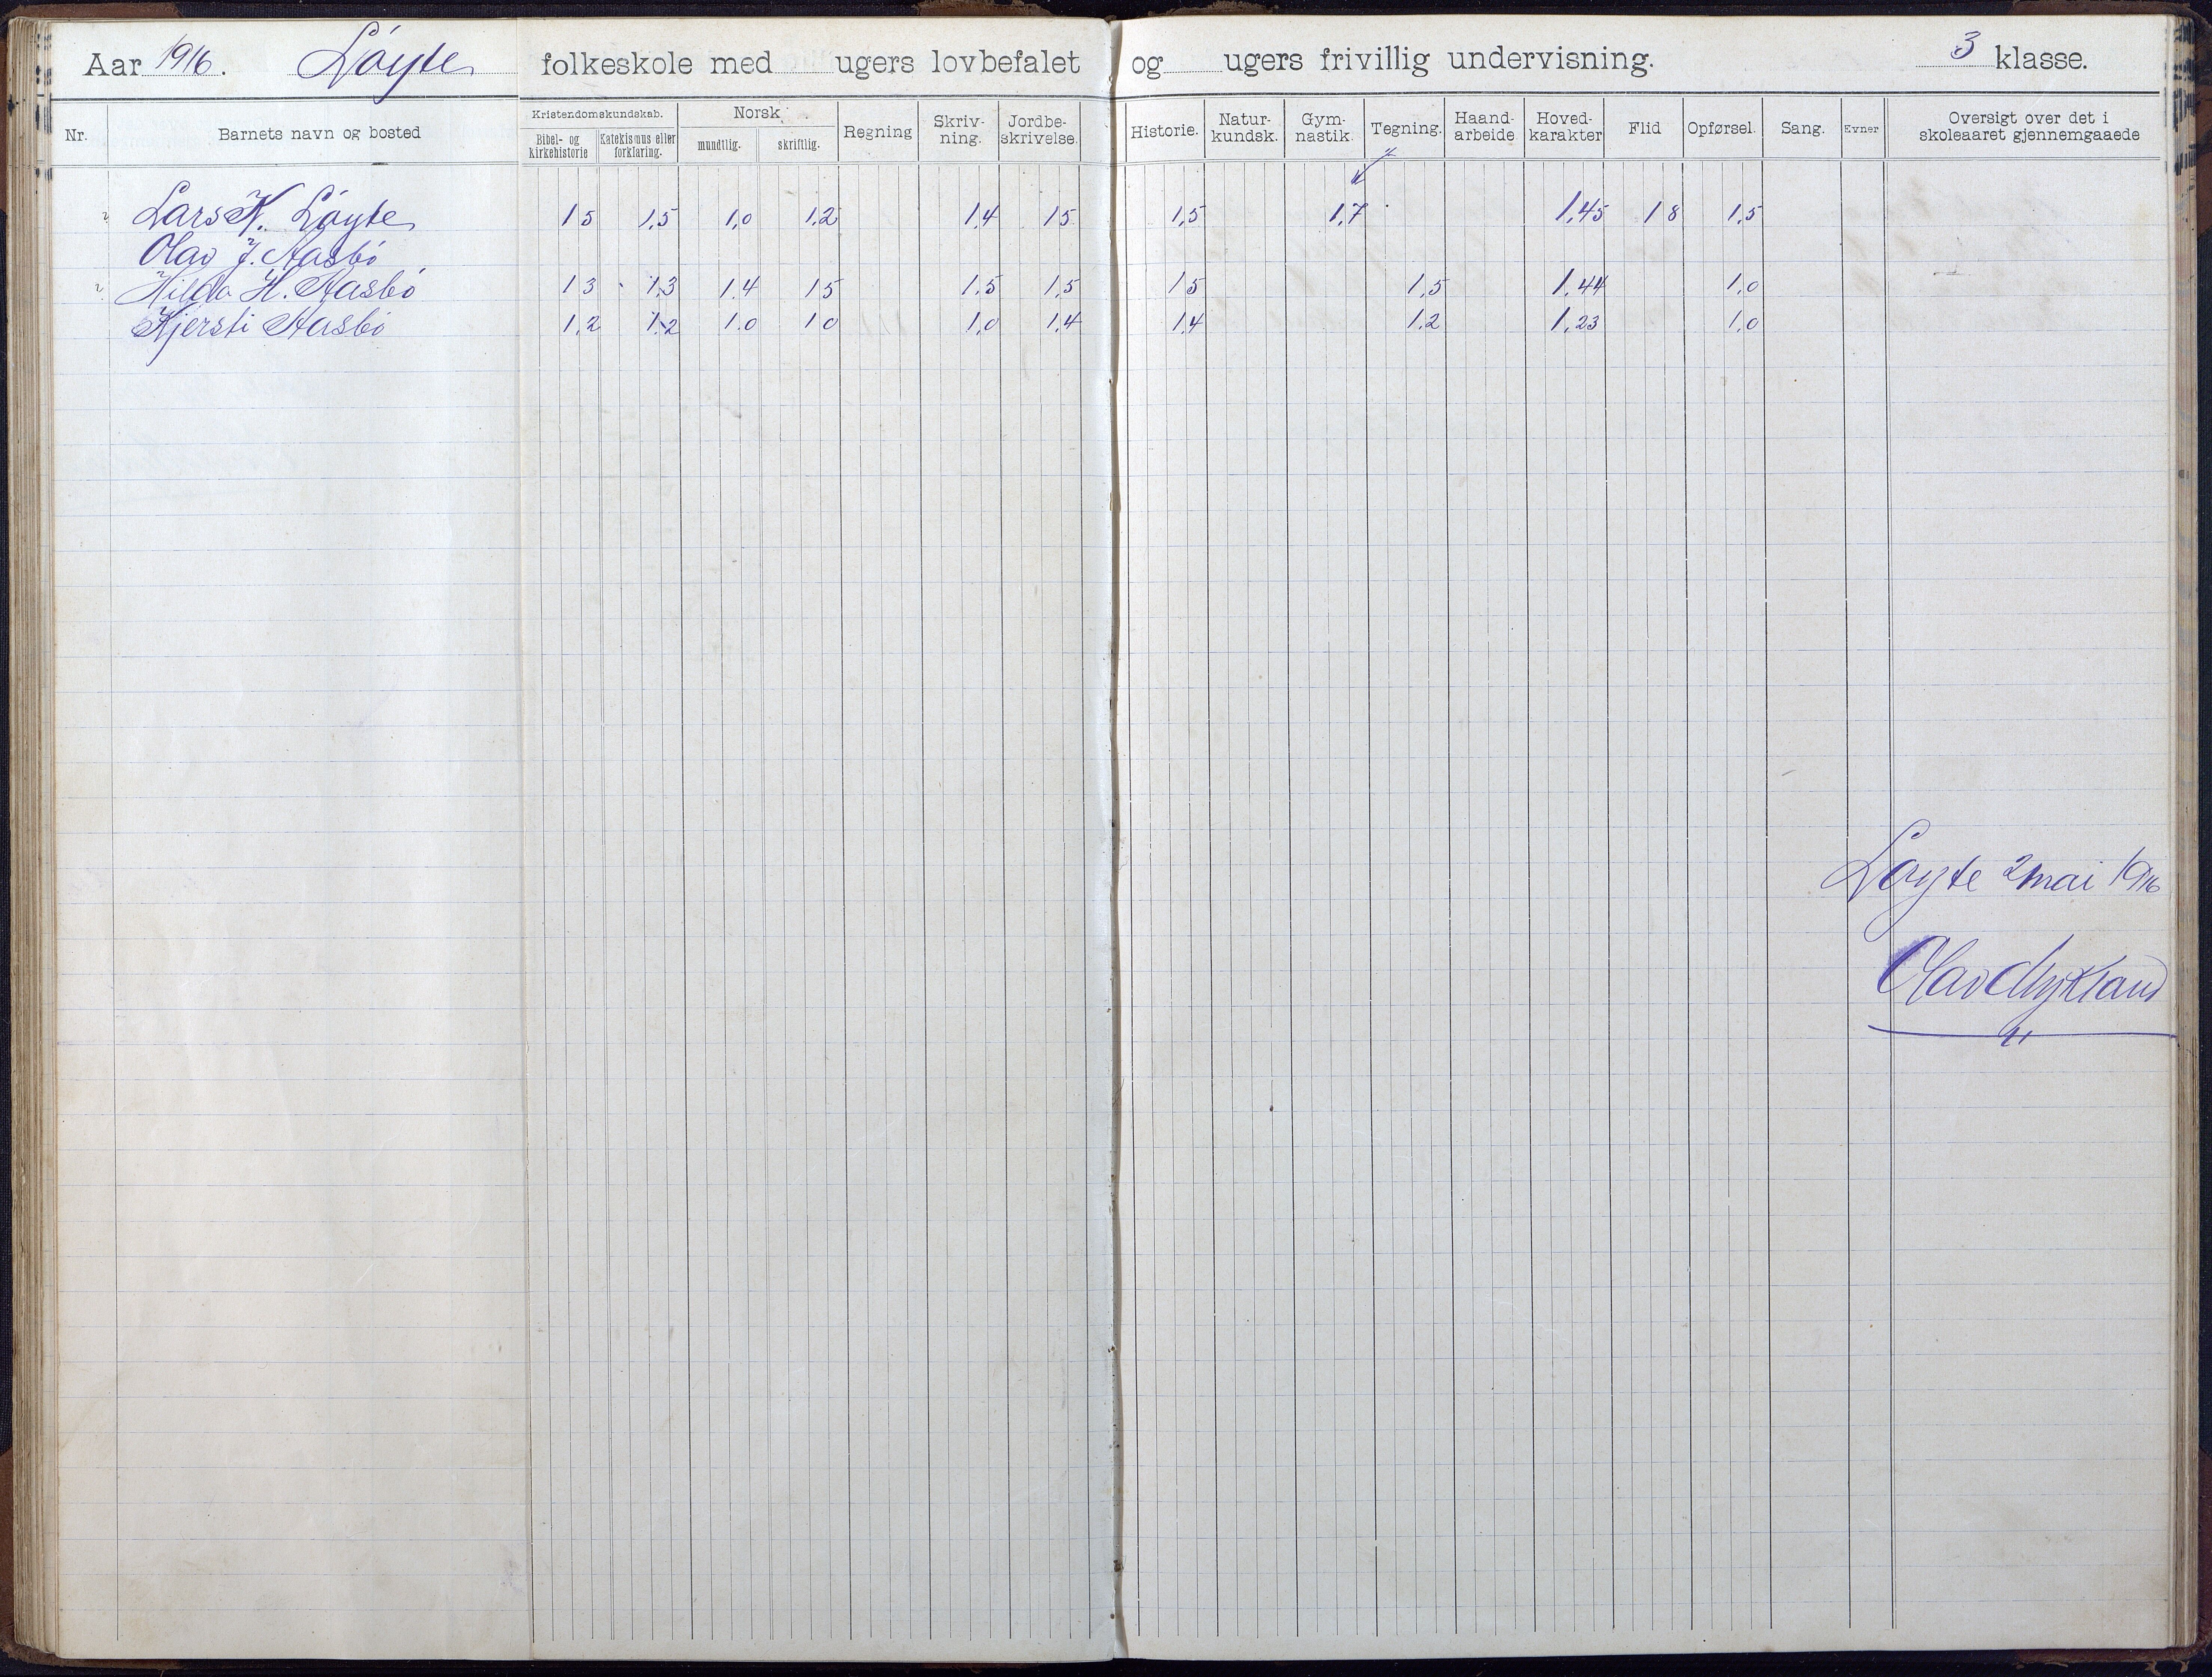 Aar 1916. Løyte folkeskole med ugers lovbefalet og ugers frivillig undervisning. 3 klasse.
Nr. Barnets navn og bosted Kristendomskundskab. Bibel- og kirkehistorie Katekismus eller forklaring. Norsk mundtlig. skriftlig. Regning Skriv-ning. Jordbe-skrivelse. Historie. Natur-kundsk. Gym-nastik. Tegning. Haand-arbeide Hoved-karakter Flid Opførsel. Sang. Evner Oversigt over det i skoleaaret gjennemgaaede
Lars K. Løyte 1 5 1,5 1,0 1,2 1,4 1 5 1,5 1,7 1,45 1 8 1,5
Olav J. Aasbø
Hilda H. Aasbø 1 3 1,3 1.4 1 5 1.5 1,5 1 5 1,5 1,44 1,0
Kjersti Aasbø 1,2 1,2 1.0 1 0 1,0 1,4 1,4 1.2 1,23 1,0
Løyte 2 mai 1916
Olav